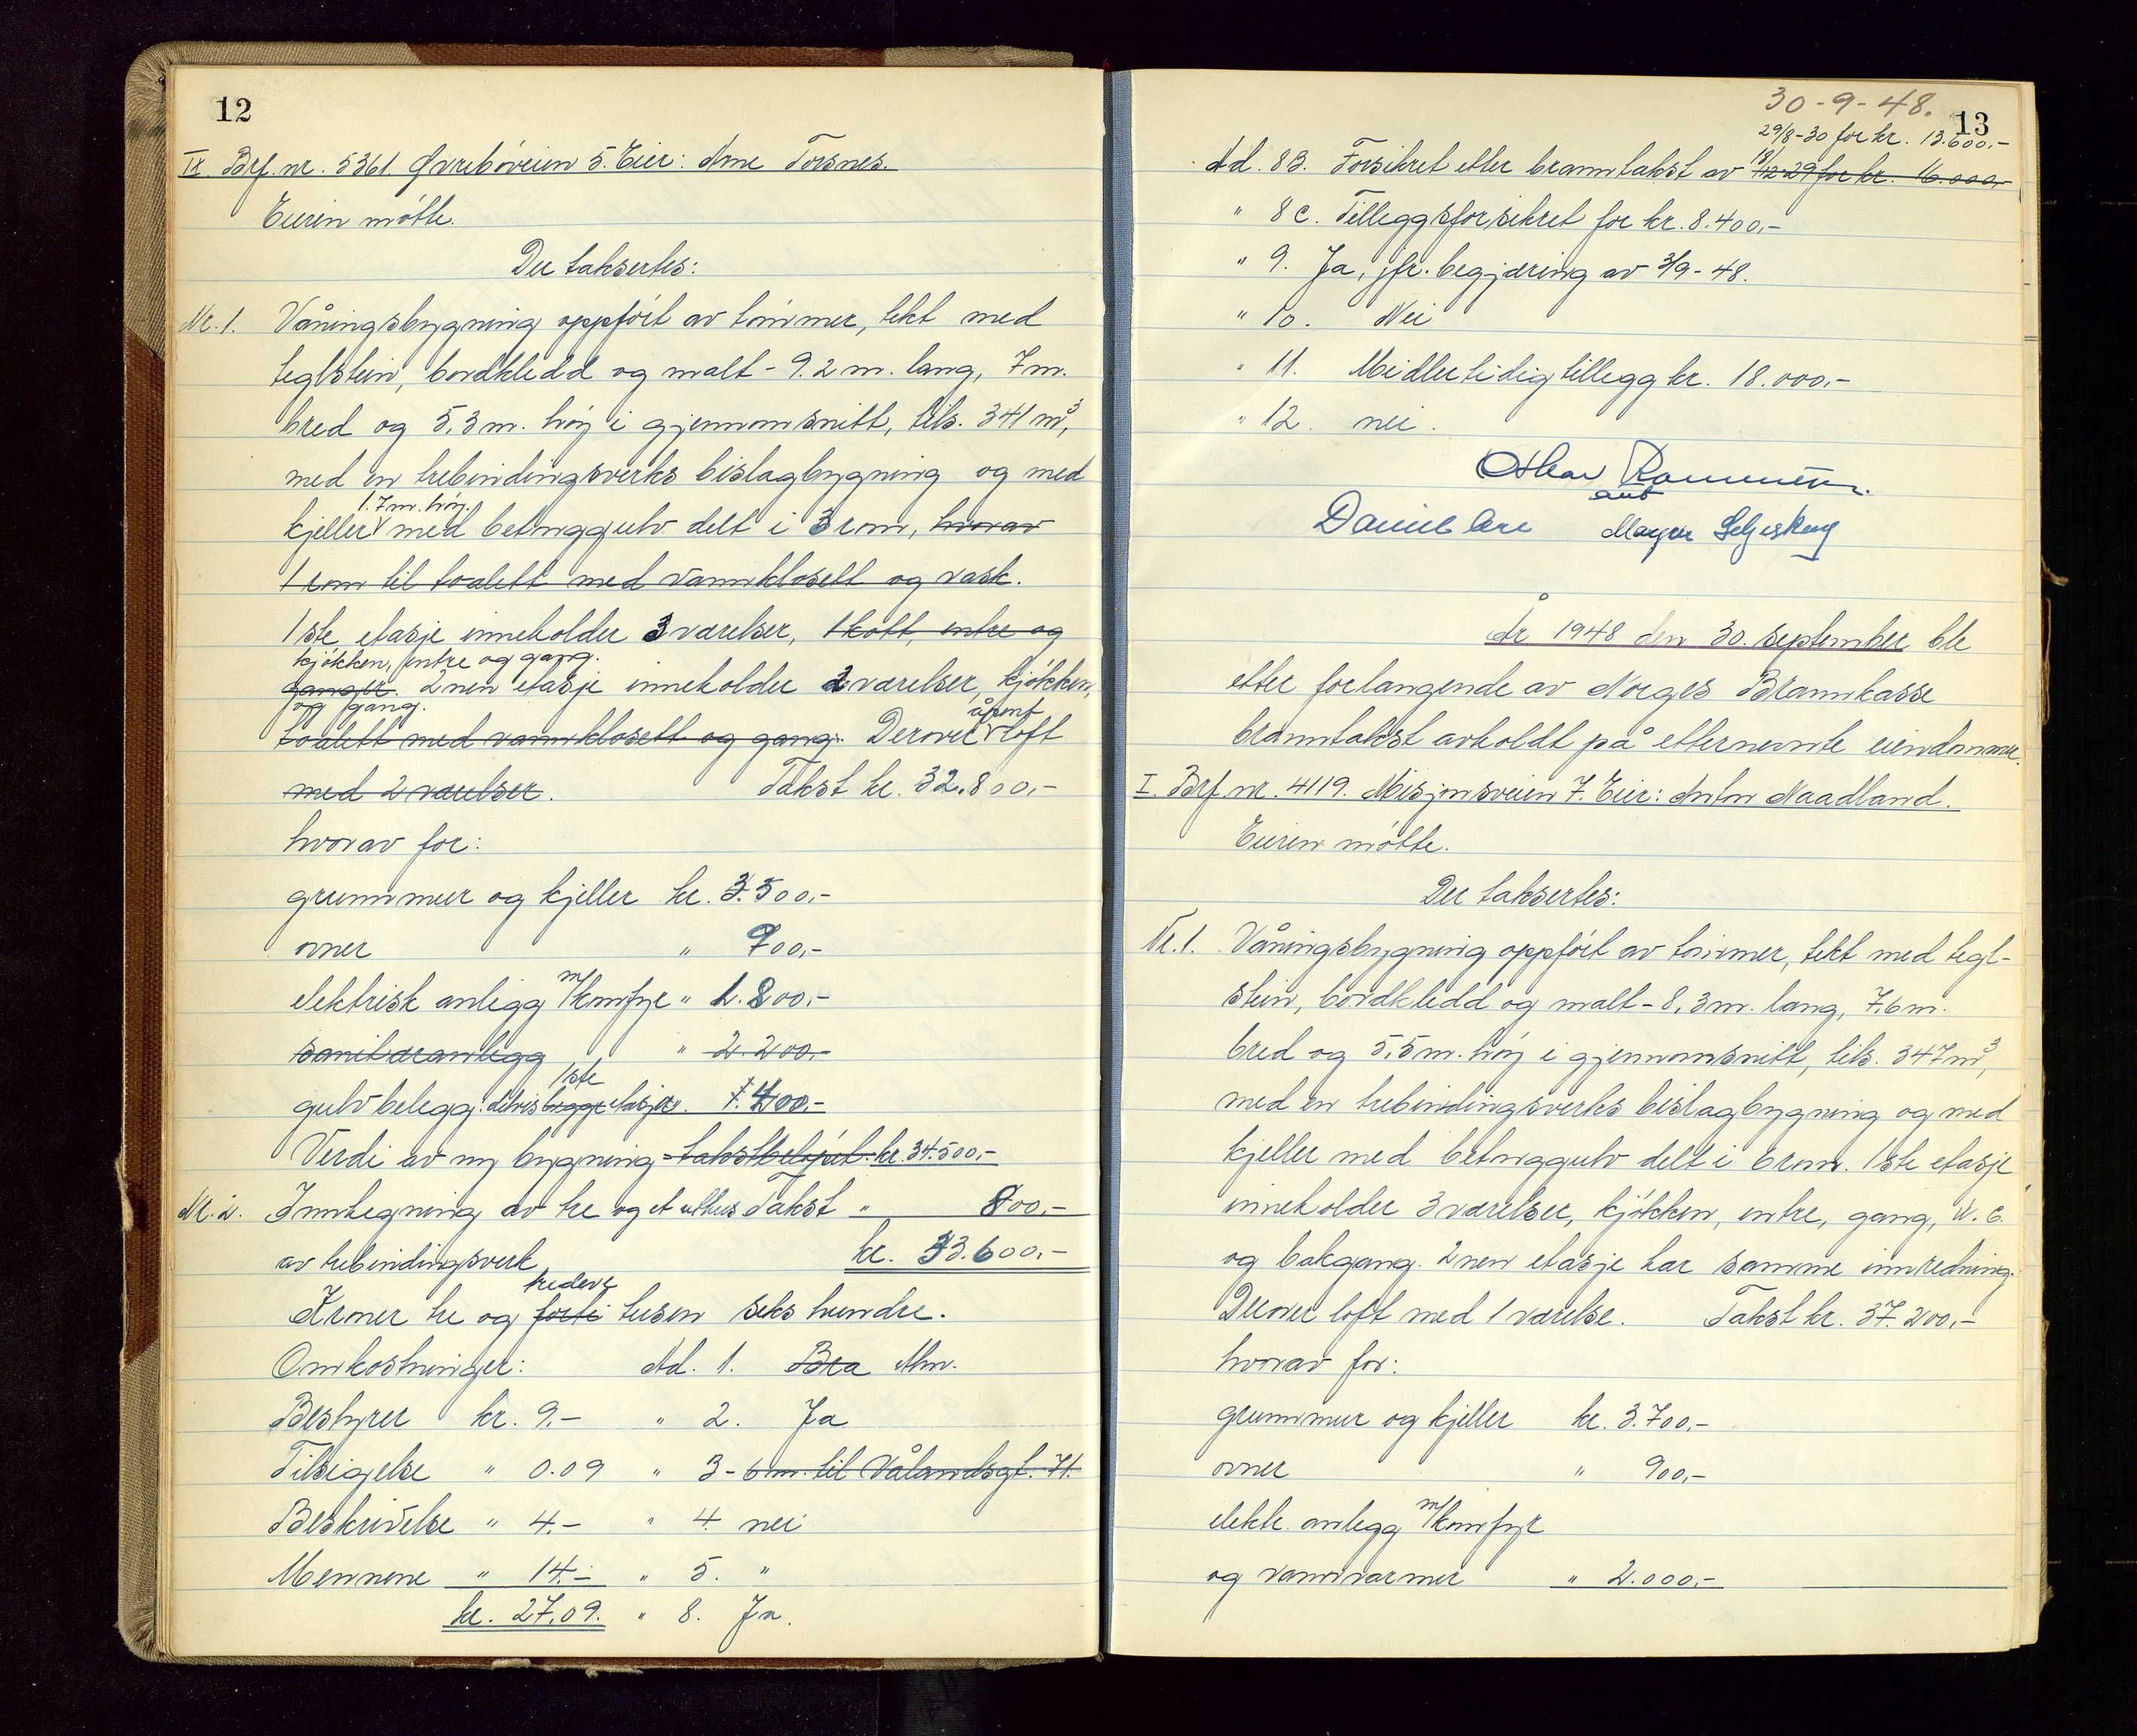 12
IX. Brf. nr. 5361. Øvrebøveien 5. Eier: Arne Torsnes.
Eieren møtte.
Der taksertes:
Nr. 1. Våningsbygning oppført av tømmer, tekt med
teglstein, bordkledd og malt - 9.2 m. lang, 7 m.
bred og 5,3 m. høy i gjennomsnitt, tils. 341 m³,
med en trebindingsverks bislagbygning og med
1.7 m. høy.
kjeller med betonggulv delt i 3 rom, hvorav
1 rom til toalett med vannklosett og vask.
1ste etasje inneholder 3 værelser, 1 kott, entre og
kjøkken, entre og gang.
ganger. 2nen etasje inneholder 2 værelser, kjøkken,
og gang. åpent
toalett med vannklosett og gang. Derover loft
med 2 værelser. Takst kr. 32.800,-
hvorav for:
grunnmur og kjeller kr. 3.500,-
ovner " 900,-
elektrisk anlegg m/komfyr " 1.800,-
sanitæranlegg " 2.200,-
1ste
gulvbelegg delvis begge etasjer. " 400,-
Verdi av ny bygning = takstbeløpet. kr. 34.500,-
Nr. 2. Inntegning av tre og et uthus Takst " 800,-
av trebindingsverk kr. 33.600,-
tredve
Kroner tre og forti tusen seks hundre.
Omkostninger: Ad. 1. Bra Alm.
Bestyrer kr. 9.- " 2. Ja
Tilsigelse " 0.09 " 3 - 6 m. til Vålandsgt. 71.
Beskrivelse " 4.- " 4. nei
Mennene " 14.- " 5. "
kr. 27,09. " 8. Ja.
30-9-48.
13
29/8-30 for kr. 13.600,-
Ad. 8B. Forsikret etter branntakst av 18/12-29 for kr. 16.000,-
" 8C. Tilleggsforsikret for kr. 8.400,-
" 9. Ja, jfr. begjæring av 3/9-48.
" 10. Nei
" 11. Midlertidig tillegg kr. 18.000,-
" 12. nei.
Daniel
År 1948 den 30. september ble
etter forlangende av Norges Brannkasse
branntakst avholdt på etternevnte eiendommer.
I. Brf. nr. 4119. Misjonsveien 7. Eier: Anton Naadland.
Eieren møtte.
Der taksertes:
Nr. 1. Våningsbygning oppført av tømmer, tekt med tegl-
stein, bordkledd og malt - 8,3 m. lang, 7,6 m.
bred og 5,5 m. høy i gjennomsnitt, tils. 347 m³,
med en trebindingsverks bislagbygning og med
kjeller med betonggulv delt i 6 rom. 1ste etasje
inneholder 3 værelser, kjøkken, entre, gang, W.C.
og bakgang. 2nen etasje har samme innredning.
Derover loft med 1 værelse. Takst kr. 37.200,-
hvorav for:
grunnmur og kjeller kr. 3.700,-
ovner " 900,-
elektr. anlegg m/komfyr
og vannvarmer " 2.000,-